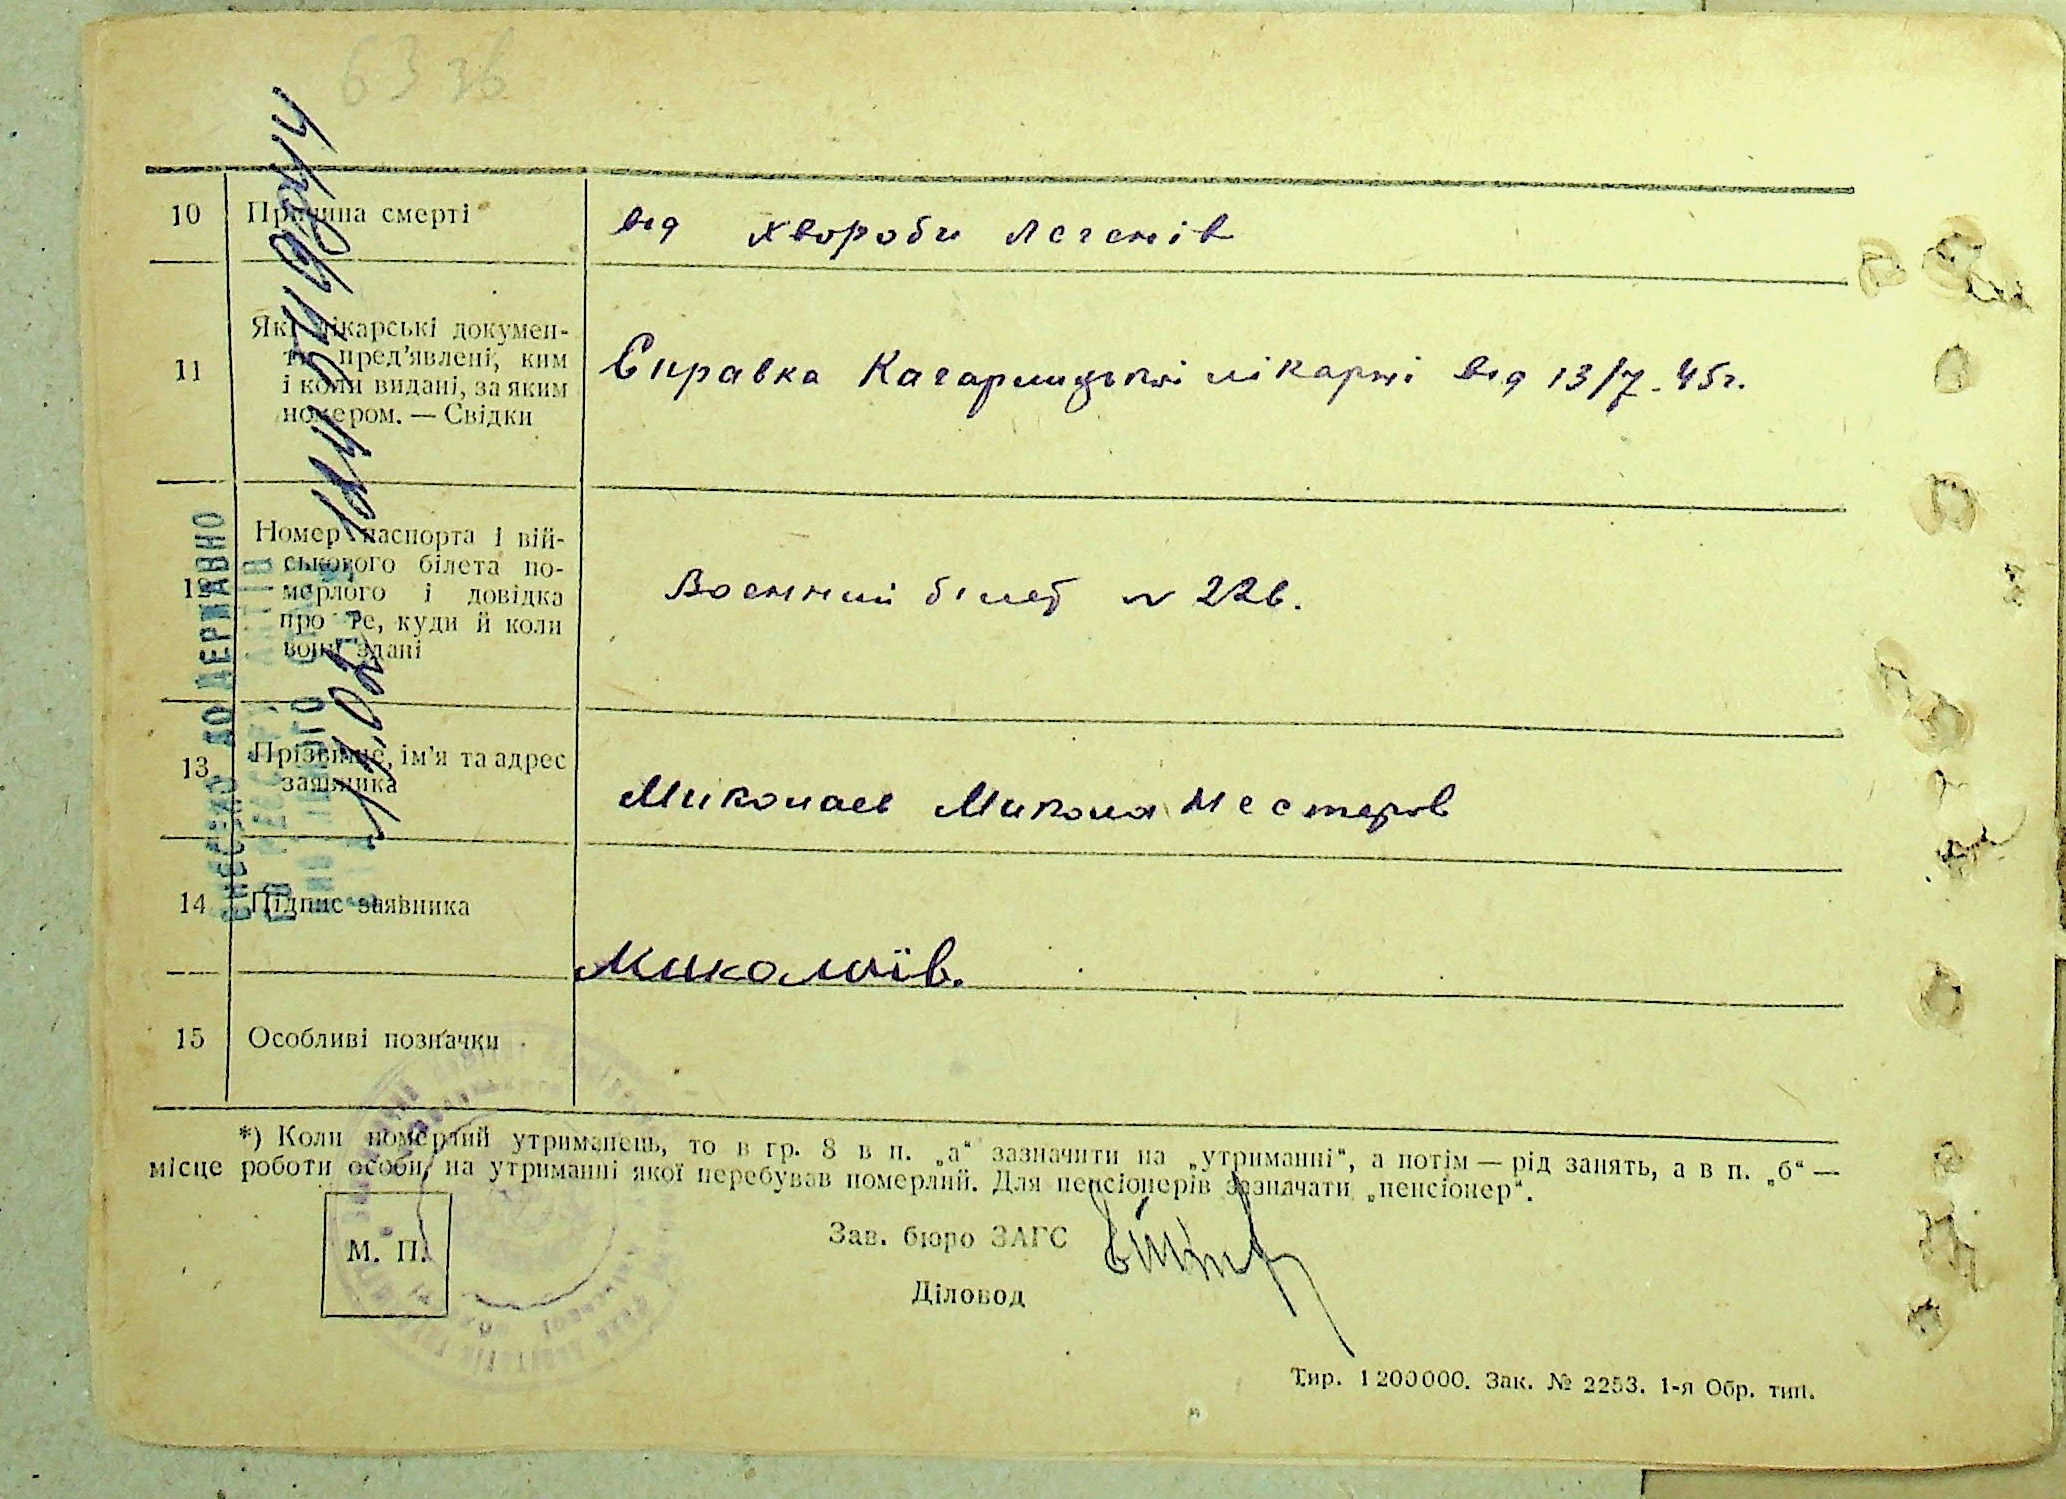 63 зв
10 Причина смерті від хвороби легенів
11 Які лікарські докумен-
ти пред'явлені, ким
і коли видані, за яким
номером. — Свідки
Справка Кагарлицької лікарні від 13/7. 45г.
12 Номер паспорта і вій-
ськового білета по-
мерлого і довідка
про те, куди й коли
вони здані
Военний білет № 226.
13 Прізвище, ім'я та адрес
заявника
Миколаев Микола Нестеров
14 Підпис заявника
Миколаїв.
15 Особливі позначки
ВНЕСЕНО ДО ДЕРЖАВНО
*) Коли померлий утриманець, то в гр. 8 в п. „а“ зазначити на „утриманні“, а потім — рід занять, а в п. „б“ —
місце роботи особи, на утриманні якої перебував померлий. Для пенсіонерів зазначати „пенсіонер“.
М. П.
Зав. бюро ЗАГС
Діловод
Тир. 1200000. Зак. № 2253. 1-я Обр. тип.